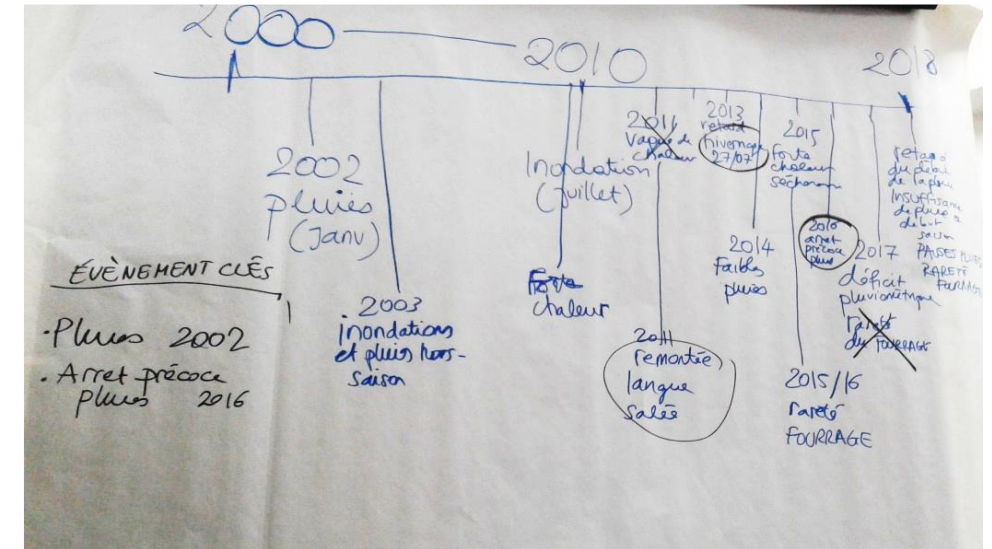 2000
2010
2018
2002
Pluies
(Janv)
2003
inondations
et pluies hors-
saison
Inondation
(Juillet)
Forte
chaleur
2011
Vague de
chaleur
2011
remontée
langue
salée
2013
retard
hivernage
27/07
2014
Faibles
pluies
2015
Forte
chaleur
2015/16
rareté
FOURRAGE
2016
arret
précoce
pluie
2017
déficit
pluviométrique
rareté
du FOURRAGE
retard
du début
de la pluie
Insuffisance
de pluie
début
saison
RARETÉ
FOURRAGE
ÉVÈNEMENT CLÉS
• Pluies 2002
• Arret précoce
pluies 2016